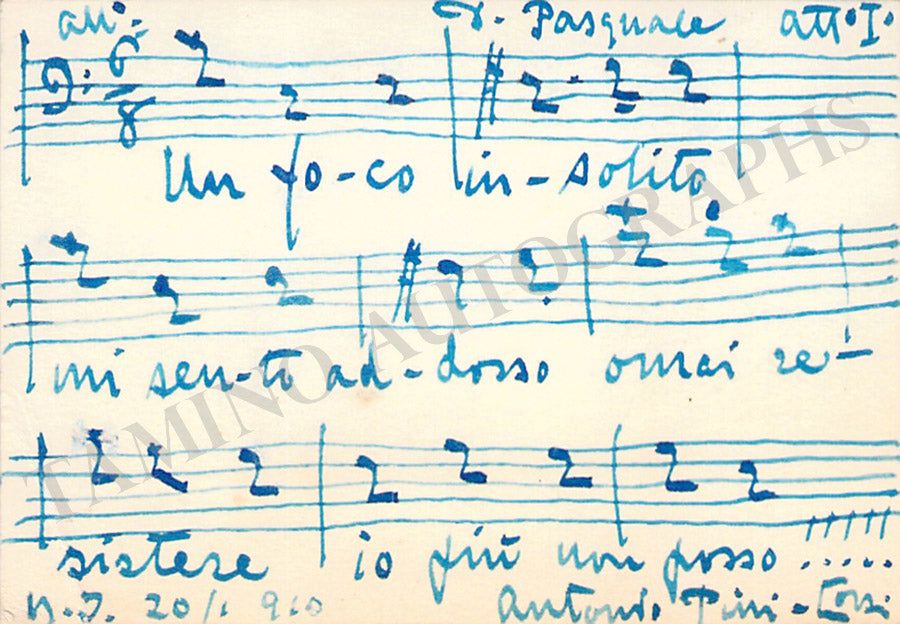 all: D. Pasquale atto I°
6/8
Un fo-co in-solito
mi sen-to ad-dosso omai re-
sistere io più non posso .....
N.Y. 20/1 910 Antonio Pini-Corsi
TAMINO AUTOGRAPHS